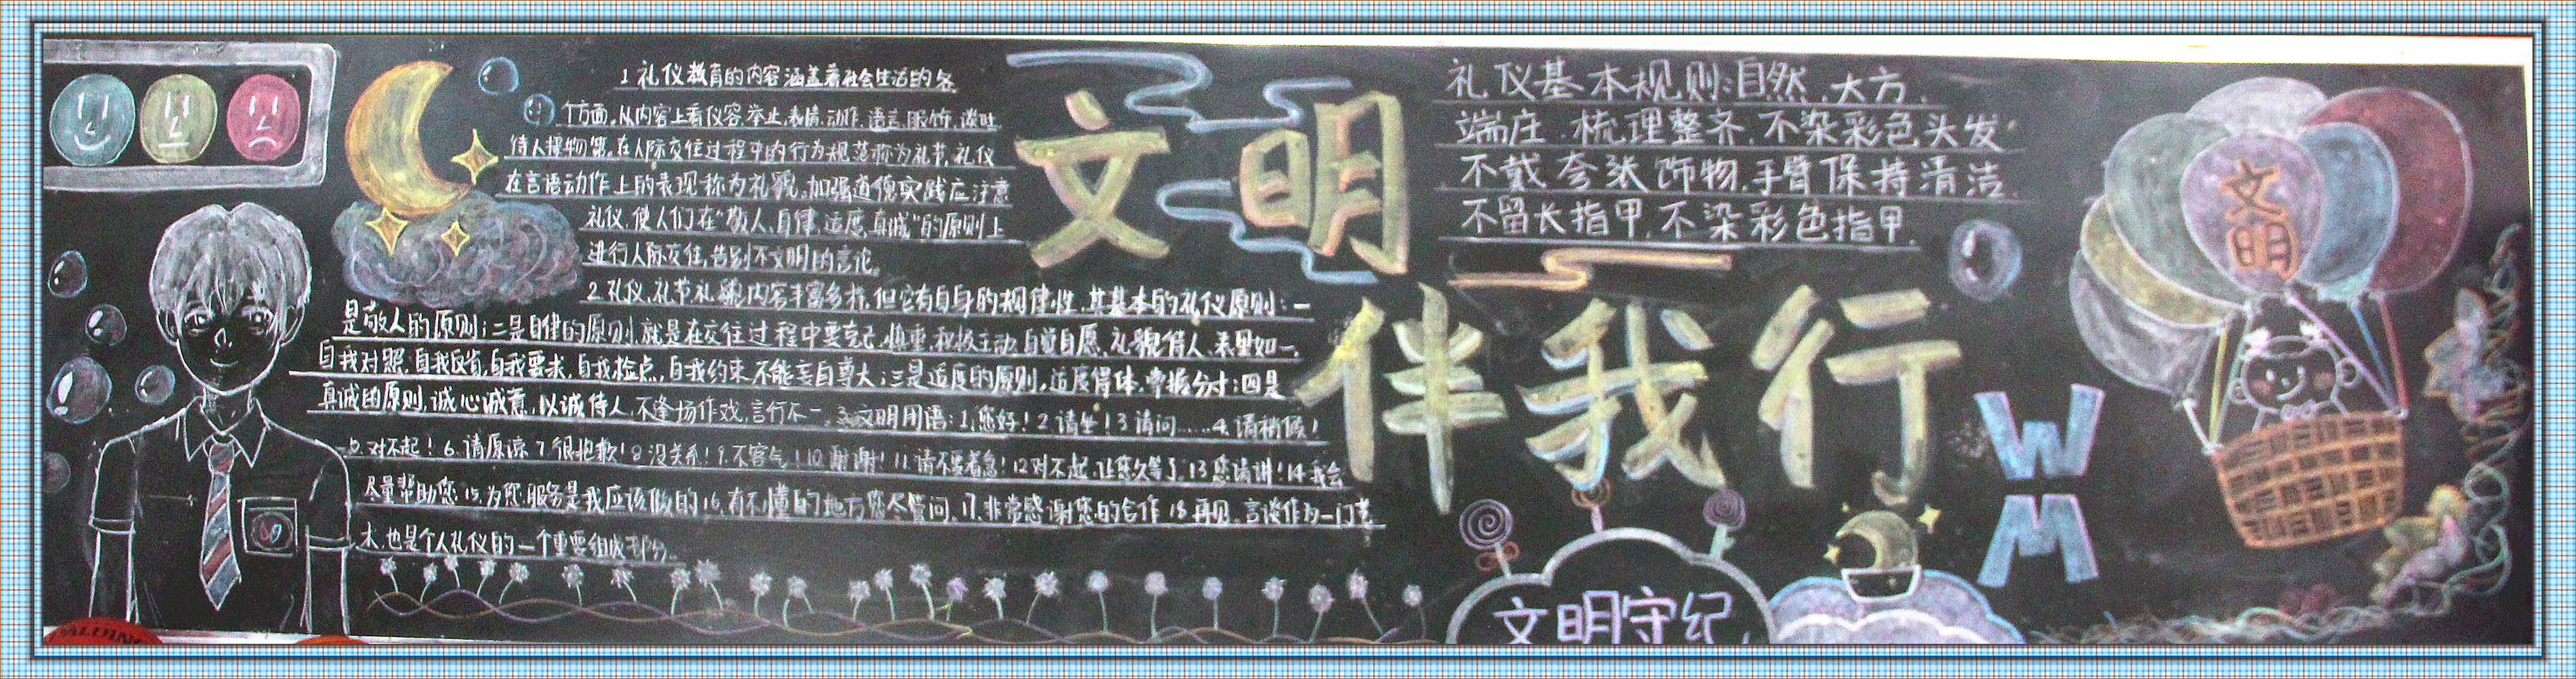 1.礼仪教育的内容涵盖着社会生活的各
个方面。从内容上看仪容,举止,表情,动作,语言,服饰,谈吐
待人接物等。在人际交往过程中的行为规范称为礼节,礼仪
在言语动作上的表现称为礼貌。加强道德实践应注意
礼仪,使人们在“敬人,自律,适度,真诚”的原则上
进行人际交往,告别不文明的言论。
2.礼仪,礼节礼貌内容丰富多样,但它有自身的规律性,其基本的礼仪原则:一
是敬人的原则;二是自律的原则,就是在交往过程中要克己,慎重,积极主动,自觉自愿,礼貌待人,表里如一,
自我对照,自我反省,自我要求,自我检点,自我约束,不能妄自尊大;三是适度的原则,适度得体,掌握分寸;四是
真诚的原则,诚心诚意,以诚待人,不逢场作戏,言行不一。3.文明用语:1,您好!2.请坐!3.请问……4.请稍候!
5.对不起!6.请原谅7.很抱歉!8.没关系!9.不客气!10.谢谢!11.请不要着急!12对不起,让您久等了。13您请讲!14.我会
尽量帮助您15.为您服务是我应该做的16.有不懂的地方您尽管问。17.非常感谢您的合作18再见。言谈作为一门艺
术,也是个人礼仪的一个重要组成部分。
文明
伴我行
礼仪基本规则:自然,大方,
端庄,梳理整齐,不染彩色头发
不戴夸张饰物,手臂保持清洁
不留长指甲,不染彩色指甲.
文明
W
M
文明守纪,
SPALDING